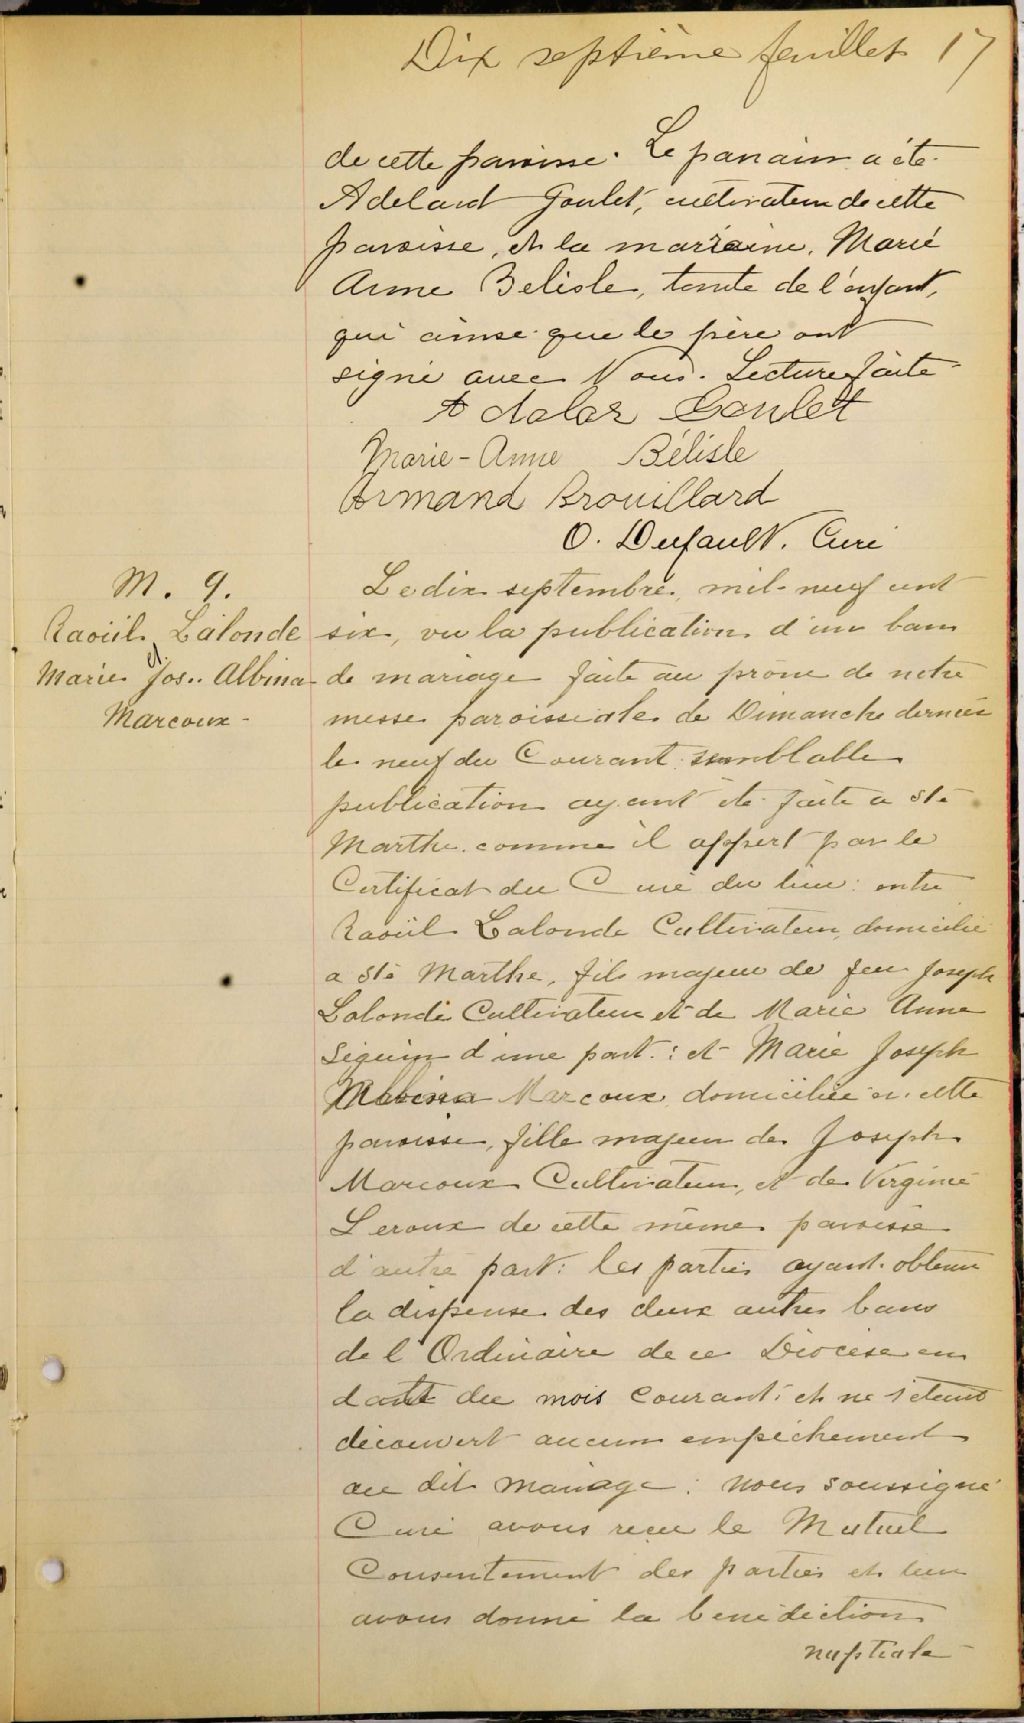 Dix septième feuillet 17
de cette paroisse. Le parrain a été
Adelard Goulet, cultivateur de cette
paroisse, et la marraine, Marie
Anne Belisle, tante de l'enfant,
qui ainsi que le père ont
signé avec Nous. Lecture faite
Adalar Goulet
Marie-Anne Bélisle
Armand Brouillard
O. Dufault. Curé
M. 9.
Raoül Lalonde
et
Marie Jos. Albina
Marcoux -
Le dix septembre, mil-neuf cent
six, vu la publication d'un ban
de mariage faite au prône de notre
messe paroissiale de Dimanche dernier
le neuf du Courant semblable
publication ayant été faite a Ste
Marthe comme il appert par le
Certificat du Curé du lieu: entre
Raoül Lalonde Cultivateur, domicilié
a Ste Marthe, fils majeur de feu Joseph
Lalonde Cultivateur et de Marie Anne
Séguin d'une part: et Marie Joseph
Albina Marcoux domiciliée en cette
paroisse, fille majeur de Joseph
Marcoux Cultivateur, et de Virginie
Leroux de cette même paroisse
d'autre part: les parties ayant obtenu
la dispense des deux autres bans
de l'Ordinaire de ce Diocèse en
date du mois courant: et ne s'étant
découvert aucun empêchement
au dit mariage: nous soussigné
Curé avons reçu le Mutuel
Consentement des parties et leur
avons donné la bénédiction
nuptiale